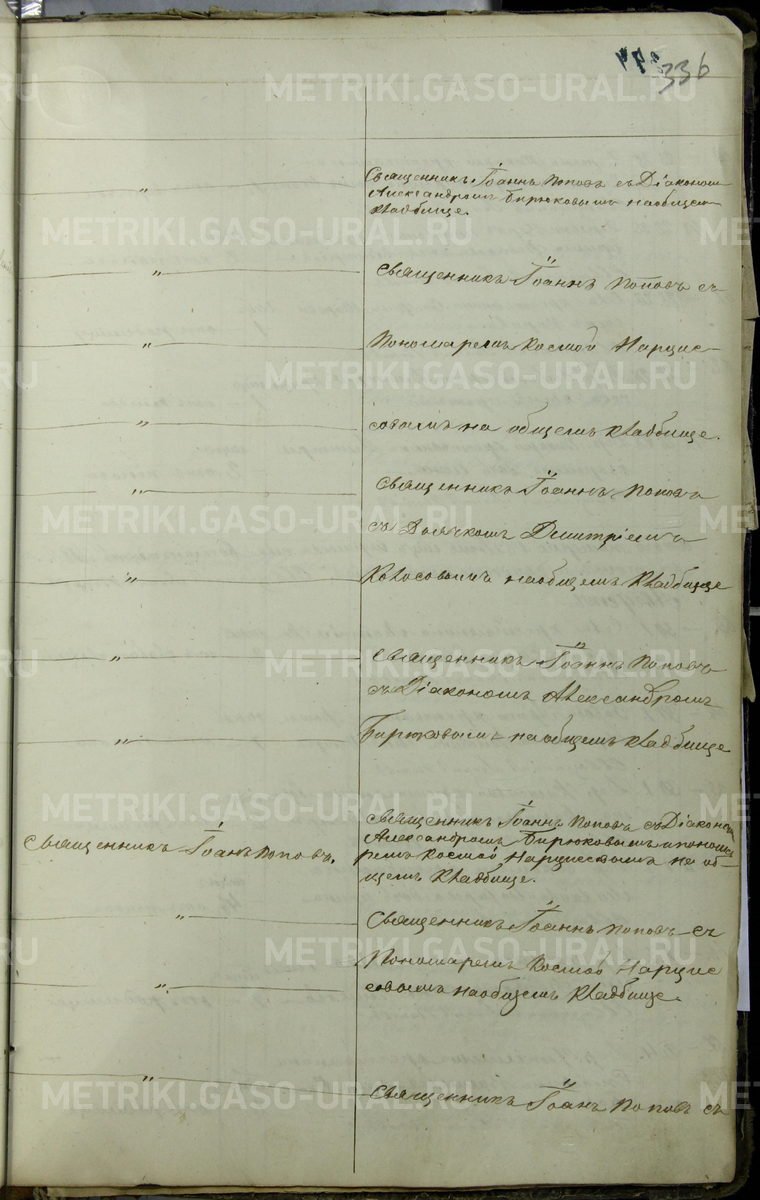 336
Священникъ Іоаннъ Поповъ съ Діаконом
Александромъ Бирюковымъ на общем
кладбище.
Священникъ Іоаннъ Поповъ съ
Пономаремъ Космой Нарцис-
совымъ на общемъ кладбище.
Священникъ Іоаннъ Поповъ
съ Дьячкомъ Димитріемъ
Колосовымъ на общемъ кладбище
Священникъ Іоаннъ Поповъ
съ Діакономъ Александромъ
Бирюковымъ на общемъ кладбище
Священникъ Іоанъ Поповъ.
Священникъ Іоаннъ Поповъ съ Діаконом
Александромъ Бирюковымъ и понома
ремъ Космой Нарциссовымъ на об-
щемъ кладбище.
Священникъ Іоаннъ Поповъ съ
Пономаремъ Космой Нарцис
совымъ на общемъ кладбище.
Священникъ Іоанъ Поповъ съ
METRIKI.GASO-URAL.RU